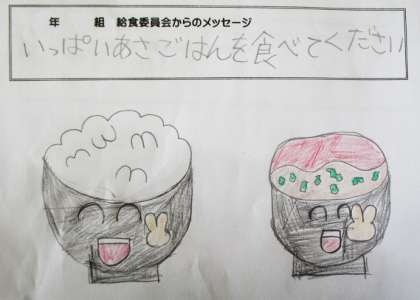 年 組 給食委員会からのメッセージ
いっぱいあさごはんを食べてください